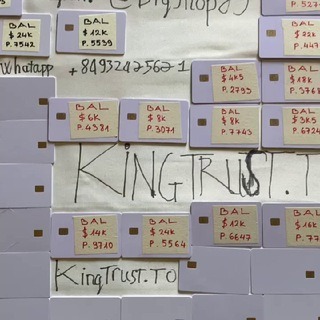 P.527
BAL
$ 24K
P.7542
BAL
$ 12K
P.5539
$ 22K
P.447
whatapp +84932425621
BAL
$ 4K5
P.2793
BAL
$ 18K
P.3768
BAL
$ 6K
P.4381
BAL
$ 8K
P.3071
BAL
$ 8K
P.7743
BAL
$ 3K5
P.6724
KINGTRUST.T
BAL
$ 14K
P.9710
BAL
$ 24K
P.5564
BAL
$ 12K
P.6647
BAL
$ 16K
P.77
KingTrust.TO